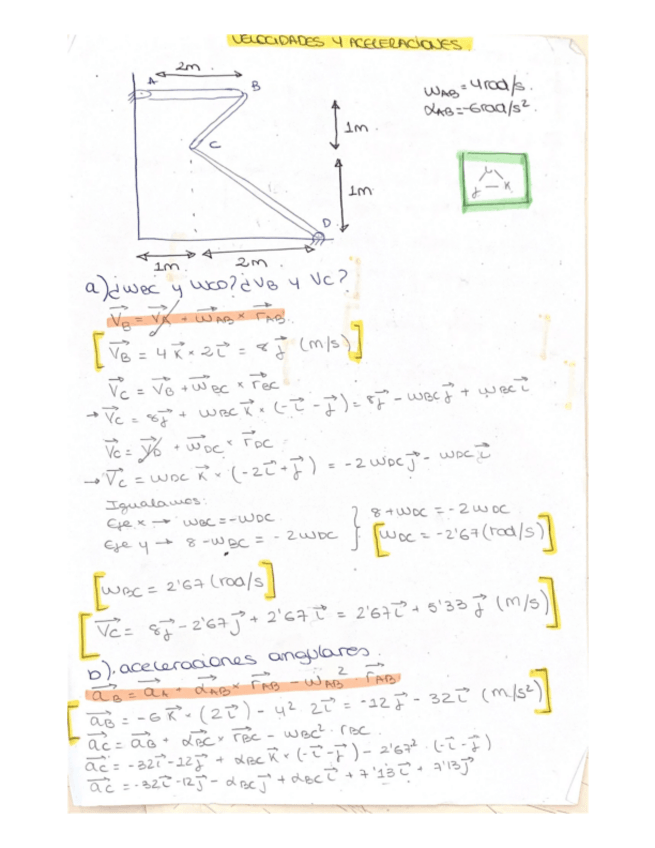 VELOCIDADES Y ACELERACIONES
2m
A
B
C
D
1m
1m
1m
2m
ωAB = 4 rad/s.
αAB = -6 rad/s².
i
j — k
a) ¿ωBC y ωCD? ¿VB y VC?
VB = VA + ωAB × rAB
VB = 4k × 2i = 8j (m/s)
VC = VB + ωBC × rBC
→ VC = 8j + ωBC k × (-i - j) = 8j - ωBC j + ωBC i
VC = VD + ωDC × rDC
→ VC = ωDC k × (-2i + j) = -2ωDC j - ωDC i
Igualamos:
Eje x → ωBC = -ωDC
Eje y → 8 - ωBC = -2ωDC
8 + ωDC = -2ωDC
ωDC = -2'67 (rad/s)
ωBC = 2'67 (rad/s
VC = 8j - 2'67j + 2'67i = 2'67i + 5'33j (m/s)
b). aceleraciones angulares.
aB = aA + αAB × rAB - ωAB² · rAB
aB = -6k × (2i) - 4² · 2i = -12j - 32i (m/s²)
aC = aB + αBC × rBC - ωBC² · rBC.
aC = -32i - 12j + αBC k × (-i - j) - 2'67² · (-i - j)
aC = -32i - 12j - αBC j + αBC i + 7'13i + 7'13j